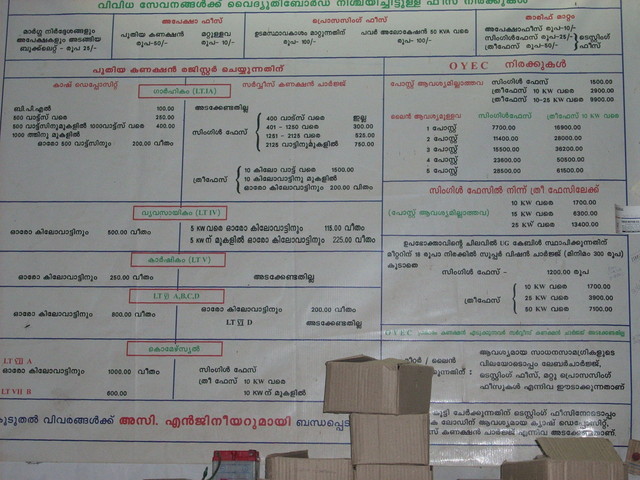 വിവിധ സേവനങ്ങൾക്ക് വൈദ്യുതിബോർഡ് നിശ്ചയിച്ചിട്ടുള്ള ഫീസ് നിരക്കുകൾ
മാർഗ്ഗ നിർദ്ദേശങ്ങളും
അപേക്ഷകളും അടങ്ങിയ
ബുക്ക്ലെറ്റ് - രൂപ 25/-
അപേക്ഷാ ഫീസ്
പുതിയ കണക്ഷൻ മറ്റുള്ളവ
രൂപ-50/- രൂപ- 10/-
പ്രോസസിംഗ് ഫീസ്
ഉടമസ്ഥാവകാശം മാറ്റുന്നതിന് പവർ അലോക്കേഷൻ 50 KVA വരെ
രൂപ- 100/- രൂപ- 100/-
താരിഫ് മാറ്റം
അപേക്ഷാഫീസ് രൂപ-10/-
സിംഗിൾഫേസ് രൂപ-25/- ടെസ്റ്റിംഗ്
ത്രീഫേസ് രൂപ-50/- ഫീസ്
പുതിയ കണക്ഷൻ രജിസ്റ്റർ ചെയ്യുന്നതിന്
കാഷ് ഡെപ്പോസിറ്റ് ഗാർഹികം (LT.IA) സർവ്വീസ് കണക്ഷൻ ചാർജ്ജ്
ബി.പി.എൽ 100.00 അടക്കേണ്ടതില്ല
500 വാട്ട്സ് വരെ 250.00
500 വാട്ട്സിനുമുകളിൽ 1000വാട്ട്സ് വരെ 400.00
1000 ത്തിനു മുകളിൽ
ഓരോ 500 വാട്ട്സിനും 200.00 വീതം
സിംഗിൾ ഫേസ്
400 വാട്ട്സ് വരെ ഇല്ല
401 - 1250 വരെ 300.00
1251 - 2125 വരെ 525.00
2125 വാട്ടിനുമുകളിൽ 750.00
ത്രീഫേസ്
10 കിലോ വാട്ട് വരെ 1500.00
10 കിലോവാട്ടിനു മുകളിൽ
ഓരോ കിലോവാട്ടിനും 200.00 വീതം
വ്യവസായികം (LT IV)
ഓരോ കിലോവാട്ടിനും 500.00 വീതം
5 KW വരെ ഓരോ കിലോവാട്ടിനും 115.00 വീതം
5 KW ന് മുകളിൽ ഓരോ കിലോവാട്ടിനും 225.00 വീതം
കാർഷികം (LT V)
ഓരോ കിലോവാട്ടിനും 250.00 വീതം അടക്കേണ്ടതില്ല
LT VI A,B,C,D
ഓരോ കിലോവാട്ടിനും 800.00 വീതം ഓരോ കിലോവാട്ടിനും 200.00 വീതം
LT VI D അടക്കേണ്ടതില്ല
കൊമേഴ്സ്യൽ
LT VII A
ഓരോ കിലോവാട്ടിനും 1000.00 വീതം
LT VII B 600.00
സിംഗിൾ ഫേസ്
ത്രീ ഫേസ് 10 KW വരെ
10 KW ന് മുകളിൽ
കൂടുതൽ വിവരങ്ങൾക്ക് അസി. എൻജിനീയറുമായി ബന്ധപ്പെട
OYEC നിരക്കുകൾ
പോസ്റ്റ് ആവശ്യമില്ലാത്തവ സിംഗിൾ ഫേസ് 1500.00
ത്രീഫേസ് 10 KW വരെ 2900.00
ത്രീഫേസ് 10-25 KW വരെ 9900.00
ലൈൻ ആവശ്യമുള്ളവ സിംഗിൾഫേസ് ത്രീഫേസ് 10 KW വരെ
1 പോസ്റ്റ് 7700.00 15900.00
2 പോസ്റ്റ് 11400.00 25000.00
3 പോസ്റ്റ് 15500.00 36200.00
4 പോസ്റ്റ് 23500.00 50500.00
5 പോസ്റ്റ് 28500.00 61500.00
സിംഗിൾ ഫേസിൽ നിന്ന് ത്രീ ഫേസിലേക്ക്
(പോസ്റ്റ് ആവശ്യമില്ലാത്തവ) 10 KW വരെ 1700.00
15 KW വരെ 6300.00
25 KW വരെ 13400.00
ഉപഭോക്താവിന്റെ ചിലവിൽ UG കേബിൾ സ്ഥാപിക്കുന്നതിന്
മീറ്ററിന് 18 രൂപാ നിരക്കിൽ സൂപ്പർ വിഷൻ ചാർജ്ജ് (മിനിമം 300 രൂപ)
കൂടാതെ
സിംഗിൾ ഫേസ് - 1200.00 രൂപ
ത്രീഫേസ്
10 KW വരെ 1700.00
25 KW വരെ 3900.00
50 KW വരെ 7100.00
OYEC പ്രകാരം കണക്ഷൻ എടുക്കുന്നവർ സർവ്വീസ് കണക്ഷൻ ചാർജ് അടക്കേണ്ടതില്ല
മീറ്റർ / ലൈൻ
ക്കുന്നതിന് :
ആവശ്യമായ സാധനസാമഗ്രികളുടെ
വിലയോടൊപ്പം ലേബർചാർജ്ജ്,
ടെസ്റ്റിംഗ് ഫീസ്, മറ്റു പ്രൊസസിംഗ്
ഫീസുകൾ എന്നിവ ഈടാക്കുന്നതാണ്
കൂട്ടി ചേർക്കുന്നതിന് ടെസ്റ്റിംഗ് ഫീസിനോടൊപ്പം
ലോഡിന് ആവശ്യമായ ക്യാഷ് ഡെപ്പോസിറ്റ്,
കണക്ഷൻ ചാർജ്ജ് എന്നിവ അടക്കേണ്ടതാണ്.